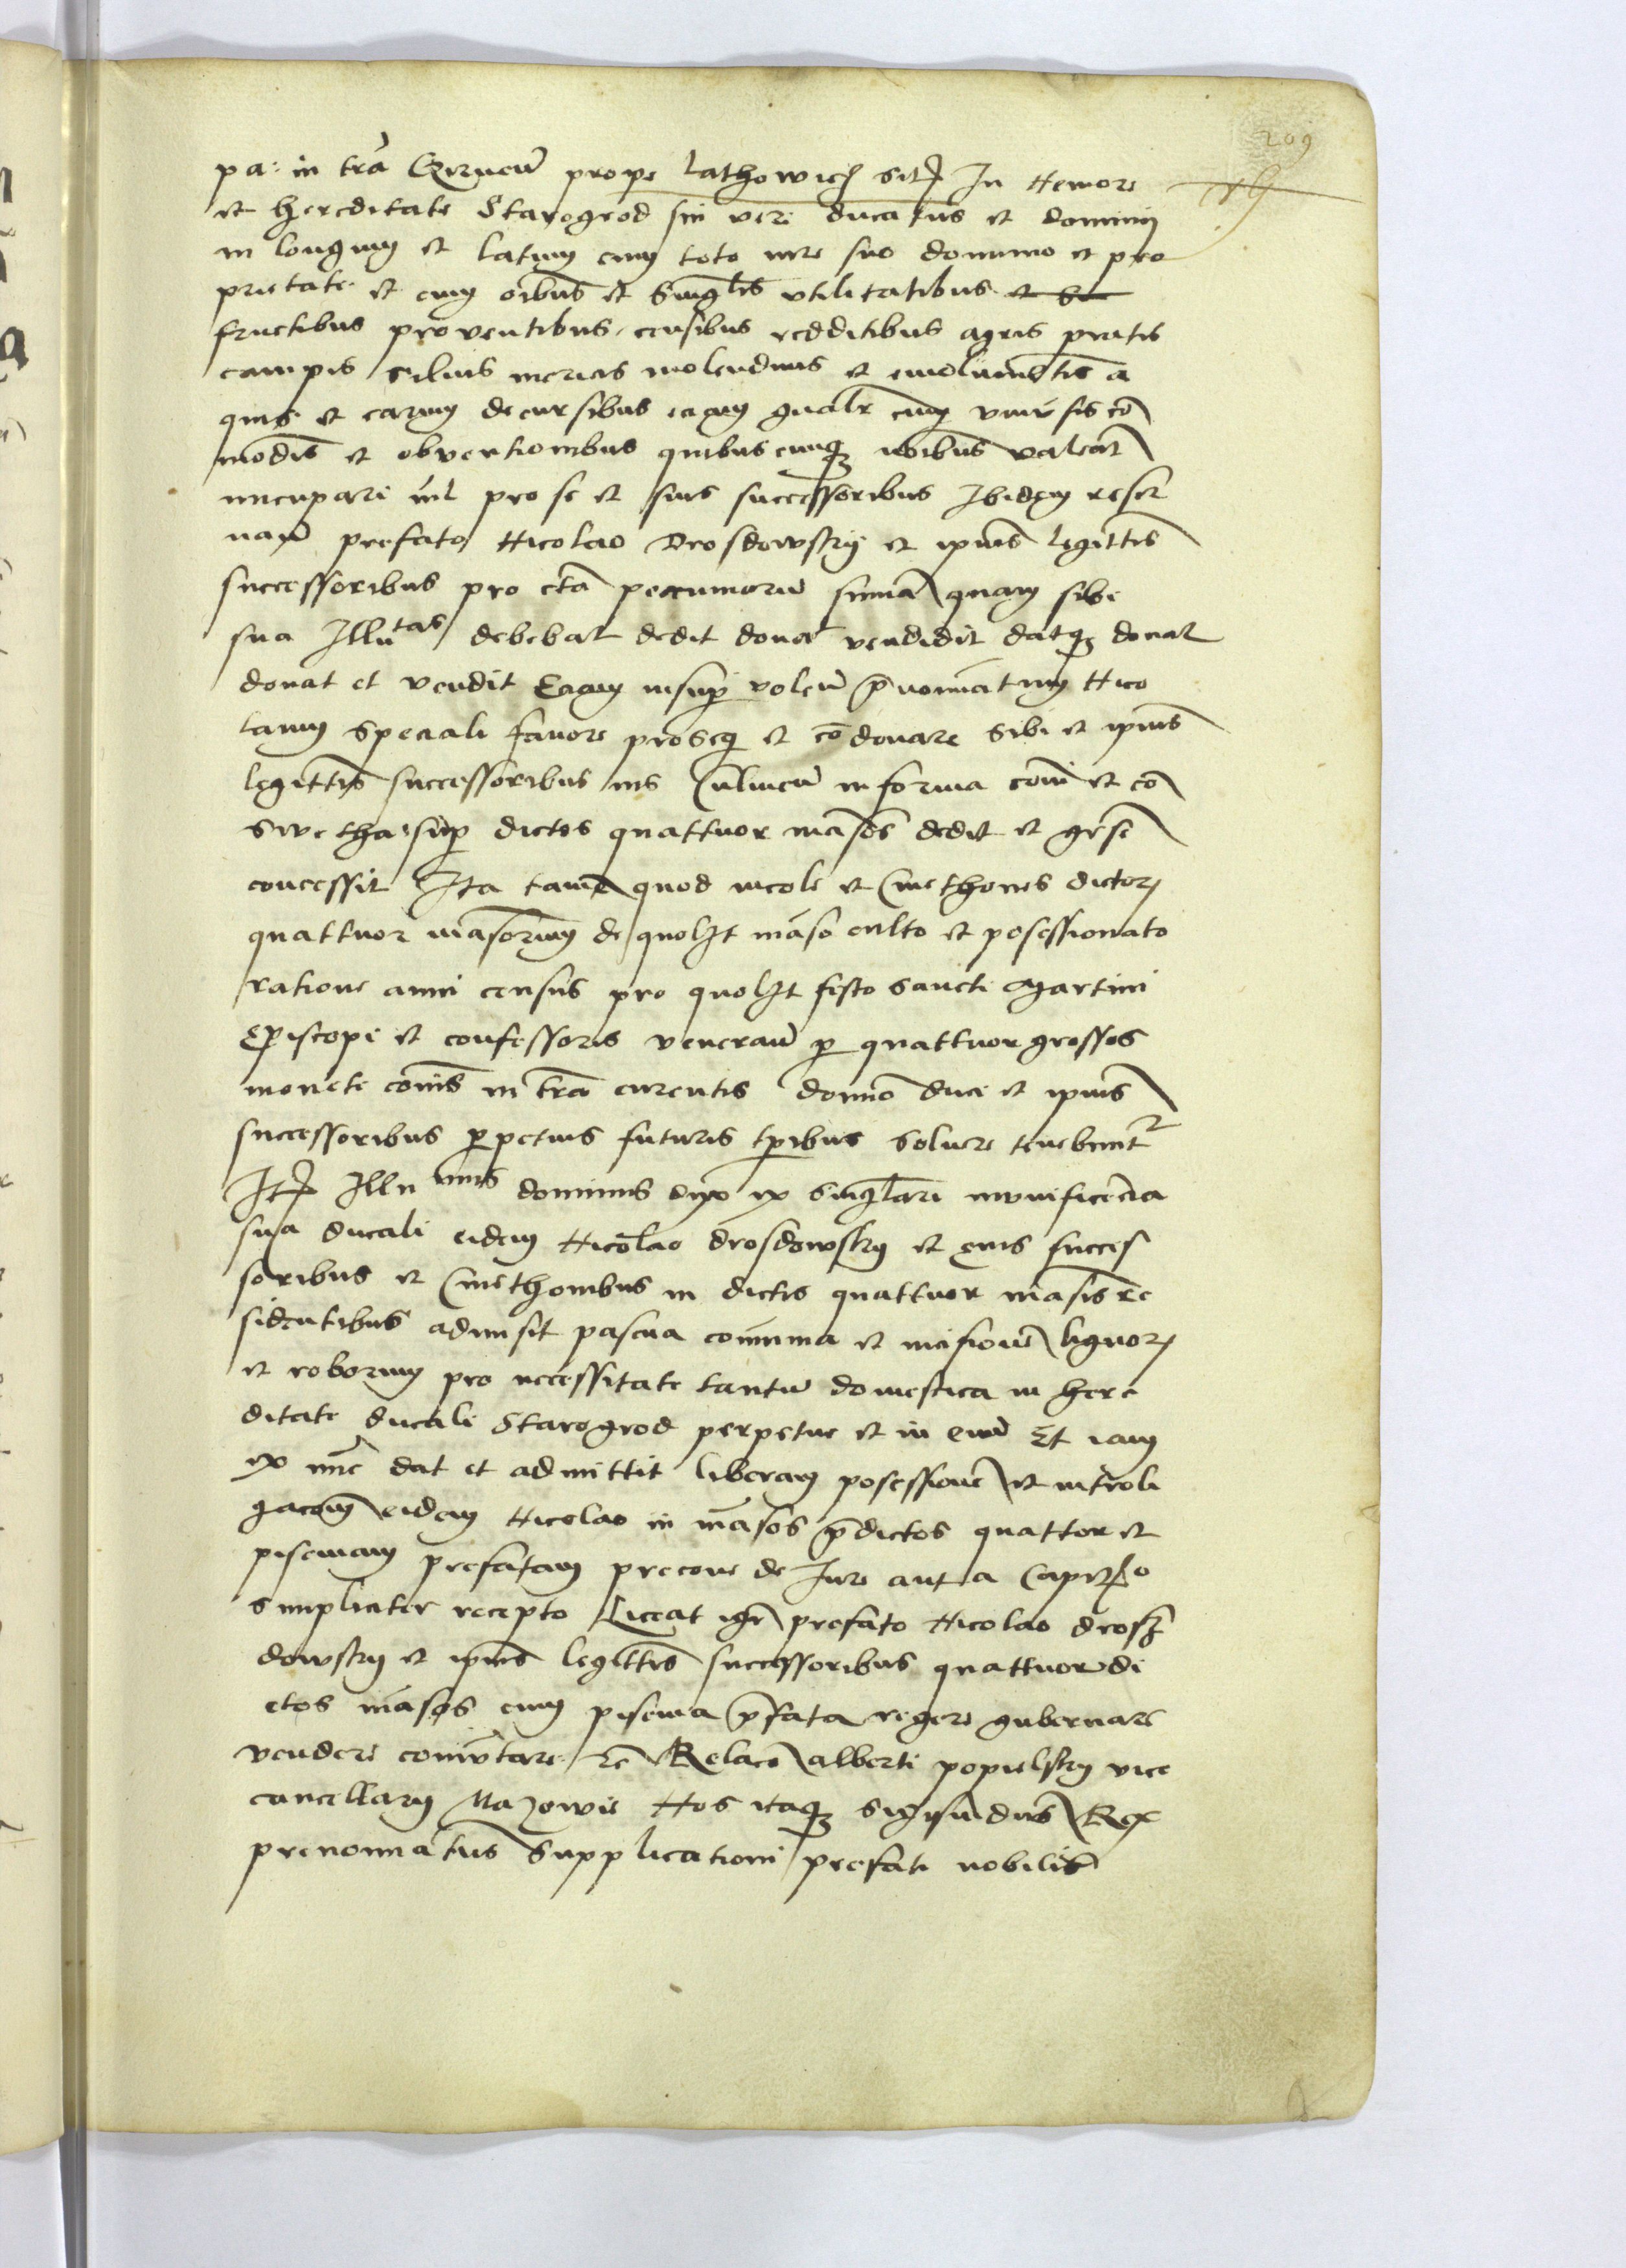 209
pa: in tra Czrneñ prope Lathowicz sitẽ In Nemore
et hereditate Starogrod sui veri ducatus et dominij
in longum et latum cum toto iure suo dominio et pro
prietate et cum oibus et singlis vtilitatibus et
fructibus proventibus censibus redditibus agris pratis
campis siluis mericis molendinis et emolumētis a
quis et earum decursibus eciam gnalr cum vniusis cō
modis et obventionibus quibuscumqз noibus valeāt
nuncupari nil pro se et suis successoribus Ibidem reser
uañ prefato Nicolao Drosdowsky et ipius legittis
successoribus pro cta pecuniarū sumā quam sibi
sua Illutas debebat dedit donat vendidit datqз donat
donat et vendit Eciam insup volens pnominatum Nico
laum speciali favore proseqi et cōdonare sibi et ipius
legittis successoribus ius Culmeñ in forma coni et cō
swetha sup dictos quattuor māsos dedit et grse
concessit Ita tamē quod incole et Cmethones dictorz
quattuor māsorum de quolzt māso culto et posessionato
ratione anni census pro quolzt festo sancti Martini
Episcopi et confessoris venerañ p quattuor grossos
monete cōis in tra curentis domīo duci et ipius
successoribus ppetuis futuris tpibus soluere tenebunt
Itē Illu vmis dominus dux ex singlari mvnificēcia
sua ducali eidem Nicolao drosdowsky et eius succes
soribus et Cmethonibus in dictis quattuor māsis re
sidentibus admisit pascua commnia et incisionē lignorz
et roborum pro necessitate tantū domestica in here
ditate ducali Starogrod perpetue et in euū Et iam
ex nūc dat et admittit liberam posessionē et introli
gacōnē eidem Nicolao in māsos pdictos quattor et
piscinam prefatam precone de Iure aut a Capitaō
simpliciter recepto Liceat igr prefato Nicolao drosz
dowsky et ipius legittis successoribus quattuor di
ctos māsos cum piscina pfata regere gubernare
vendere comūtare rē Relacō alberti popielsky vice
cancellarij Mazowie Nos itaqз Sigismūdus Rex
prenominatus Supplicationi prefati nobilis